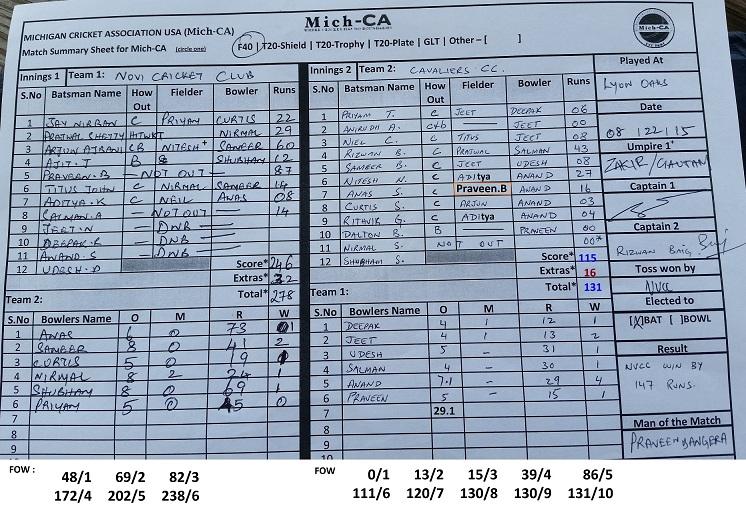 MICHIGAN CRICKET ASSOCIATION USA (Mich-CA)
Mich-CA
Match Summary Sheet for Mich-CA (circle one) F40 | T20-Shield | T20-Trophy | T20-Plate | GLT | Other – [ ]
Innings 1 Team 1: NOVI CRICKET CLUB
S.No Batsman Name How Out Fielder Bowler Runs
1 JAY NIRBAN C PRIYAM CURTIS 22
2 PRATWAL SHETTY HITWKT NIRMAL 29
3 ARJUN AJRANI CB NITESH+ SAMEER 60
4 AJIT.J B SHUBHAM 12
5 PRAVEEN.B — NOT OUT — 87
6 TITUS JOHN C NIRMAL SAMEER 14
7 ADITYA.K C NEIL ANAS 08
8 SALMAN.A — NOT OUT — 14
9 JEET.N — DNB —
10 DEEPAK.R — DNB —
11 ANAND.S — DNB —
12 UDESH.P
Score* 246
Extras* 32
Total* 278
Team 2:
S.No Bowlers Name O M R W
1 ANAS 6 0 73 1
2 SAMEER 8 0 41 2
3 CURTIS 5 0 19
4 NIRMAL 8 2 24 1
5 SHUBHAM 8 0 69 1
6 PRIYAM 5 0 45 0
7
8
9
FOW : 48/1 69/2 82/3
172/4 202/5 238/6
Innings 2 Team 2: CAVALIERS CC.
S.No Batsman Name How Out Fielder Bowler Runs
1 PRIYAM T. C JEET DEEPAK 06
2 ANIRUDH A. c+b — JEET 00
3 NIEL C. C TITUS JEET 08
4 RIZWAN B. C PRATWAL SALMAN 43
5 SAMEER B. C JEET UDESH 08
6 NITESH N. C ADitya ANAND 27
7 ANAS S. C Praveen.B ANAND 16
8 CURTIS S. C ARJUN ANAND 03
9 RITHVIK G. C ADitya ANAND 04
10 DALTON B. B — PRAVEEN 00
11 NIRMAL S. NOT OUT 00*
12 SHUBHAM S.
Score* 115
Extras* 16
Total* 131
Team 1:
S.No Bowlers Name O M R W
1 DEEPAK 4 1 12 1
2 JEET 4 1 13 2
3 UDESH 5 - 31 1
4 SALMAN 4 - 30 1
5 ANAND 7.1 - 29 4
6 PRAVEEN 5 - 15 1
7 29.1
8
9
FOW 0/1 13/2 15/3 39/4 86/5
111/6 120/7 130/8 130/9 131/10
Mich-CA
Played At
LYON OAKS
Date
08/22/15
Umpire 1
ZAKIR/GAUTAM
Captain 1
Captain 2
RIZWAN BAIG
Toss won by
NVCC
Elected to
[X]BAT [ ]BOWL
Result
NVCC WIN BY
147 RUNS.
Man of the Match
PRAVEEN BANGERA